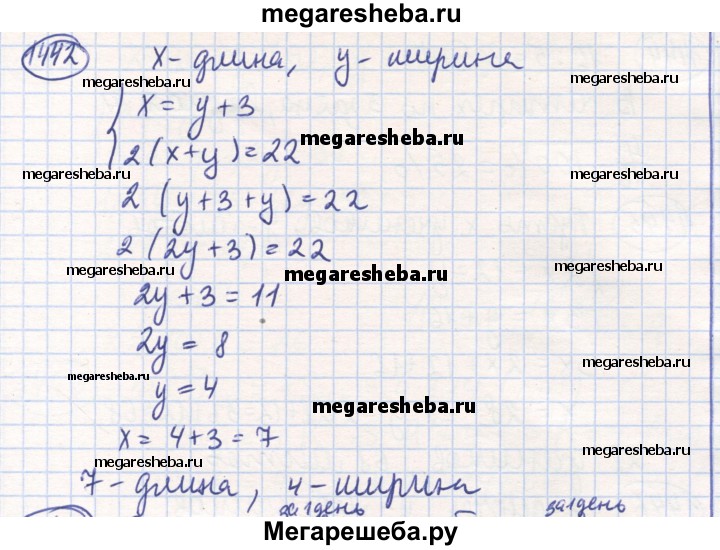 megaresheba.ru
1442 x - длина, y - ширина
megaresheba.ru megaresheba.ru
x = y + 3
megaresheba.ru
2 (x + y) = 22
megaresheba.ru megaresheba.ru
2 (y + 3 + y) = 22
2 (2y + 3) = 22
megaresheba.ru megaresheba.ru megaresheba.ru
2y + 3 = 11
2y = 8
megaresheba.ru megaresheba.ru
y = 4
megaresheba.ru
x = 4 + 3 = 7
megaresheba.ru megaresheba.ru
7 - длина, 4 - ширина
за 1 день за 1 день
Мегарешеба.ру